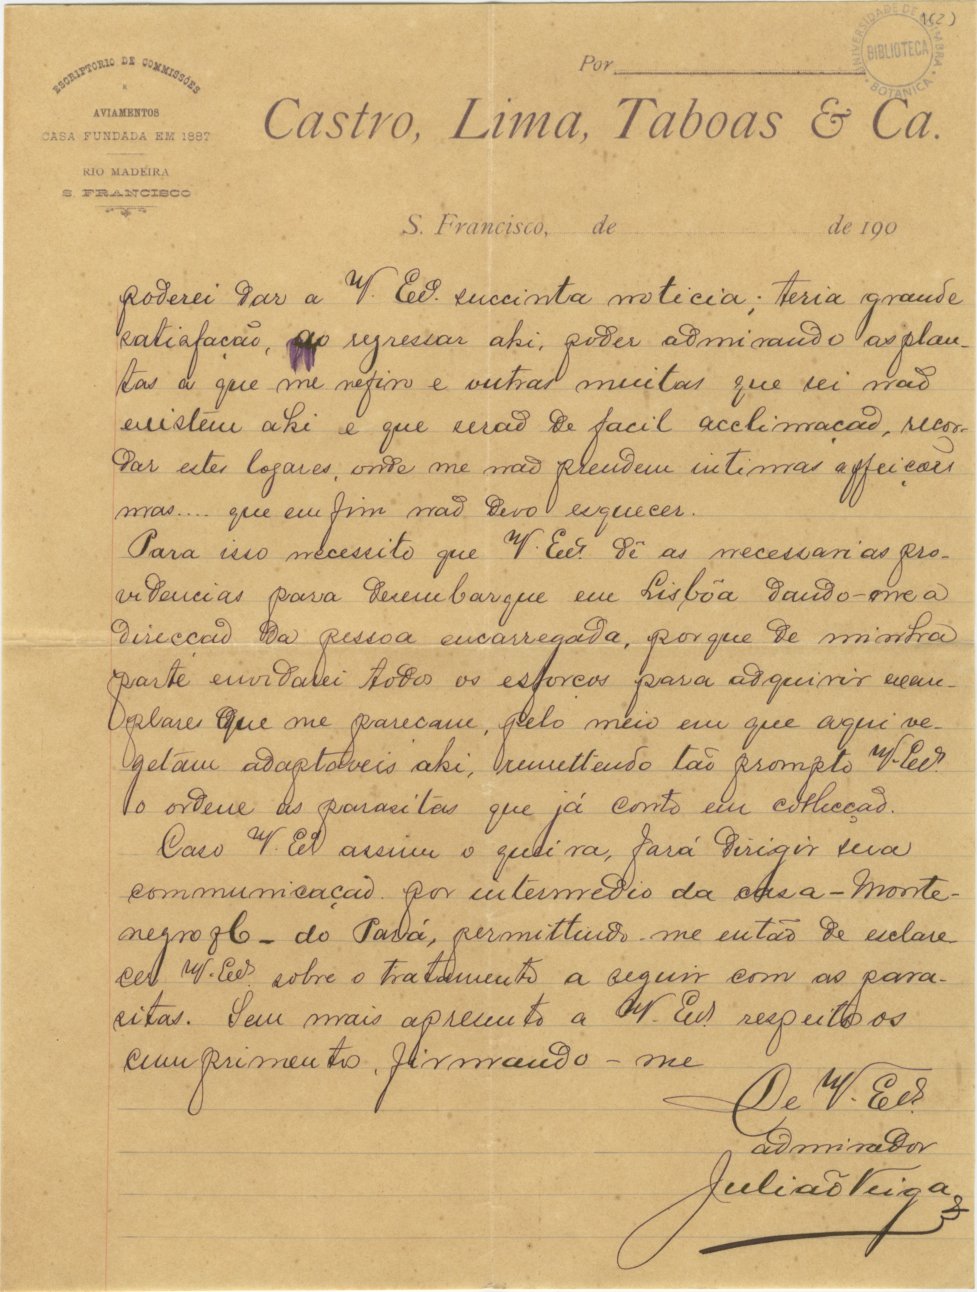 1(2)
UNIVERSIDADE DE COIMBRA
BIBLIOTECA
BOTANICA
ESCRIPTORIO DE COMMISSÕES
E
AVIAMENTOS
CASA FUNDADA EM 1887
RIO MADEIRA
S. FRANCISCO
Por
Castro, Lima, Taboas & Ca.
S. Francisco, de de 190
poderei dar a V. Exª. succinta noticia; teria grande
satisfação, ao regressar ahi, poder admirando as plan-
tas a que me refiro e outras muitas que sei naõ
existem ahi e que seraõ de facil acclimaçaõ, recor-
dar estes logares, onde me naõ prendem intimas affeiçoẽs
mas.... que em fim naõ devo esquecer.
Para isso necessito que V. Exª. dê as necessarias pro-
videncias para desembarque em Lisbôa dando-me a
direcçaõ da pessoa encarregada, porque de minha
parte envidarei todos os esforços para adquirir exem-
plares que me pareçam, pelo meio em que aqui ve-
getam adaptaveis ahi, remettendo taõ prompto V. Exª.
o ordene as parasitas que já conto em collecçaõ.
Caso V. Exª assim o queira, fará dirigir sua
communicaçaõ por intermedio da casa - Monte-
negro & C - do Pará, permittindo-me entaõ de esclare-
cer V. Exª. sobre o tratamento a seguir com as para-
sitas. Sem mais apresento a V. Exª. respeitosos
cumprimentos, firmando-me
De V. Exª.
admirador
Juliaõ Veiga